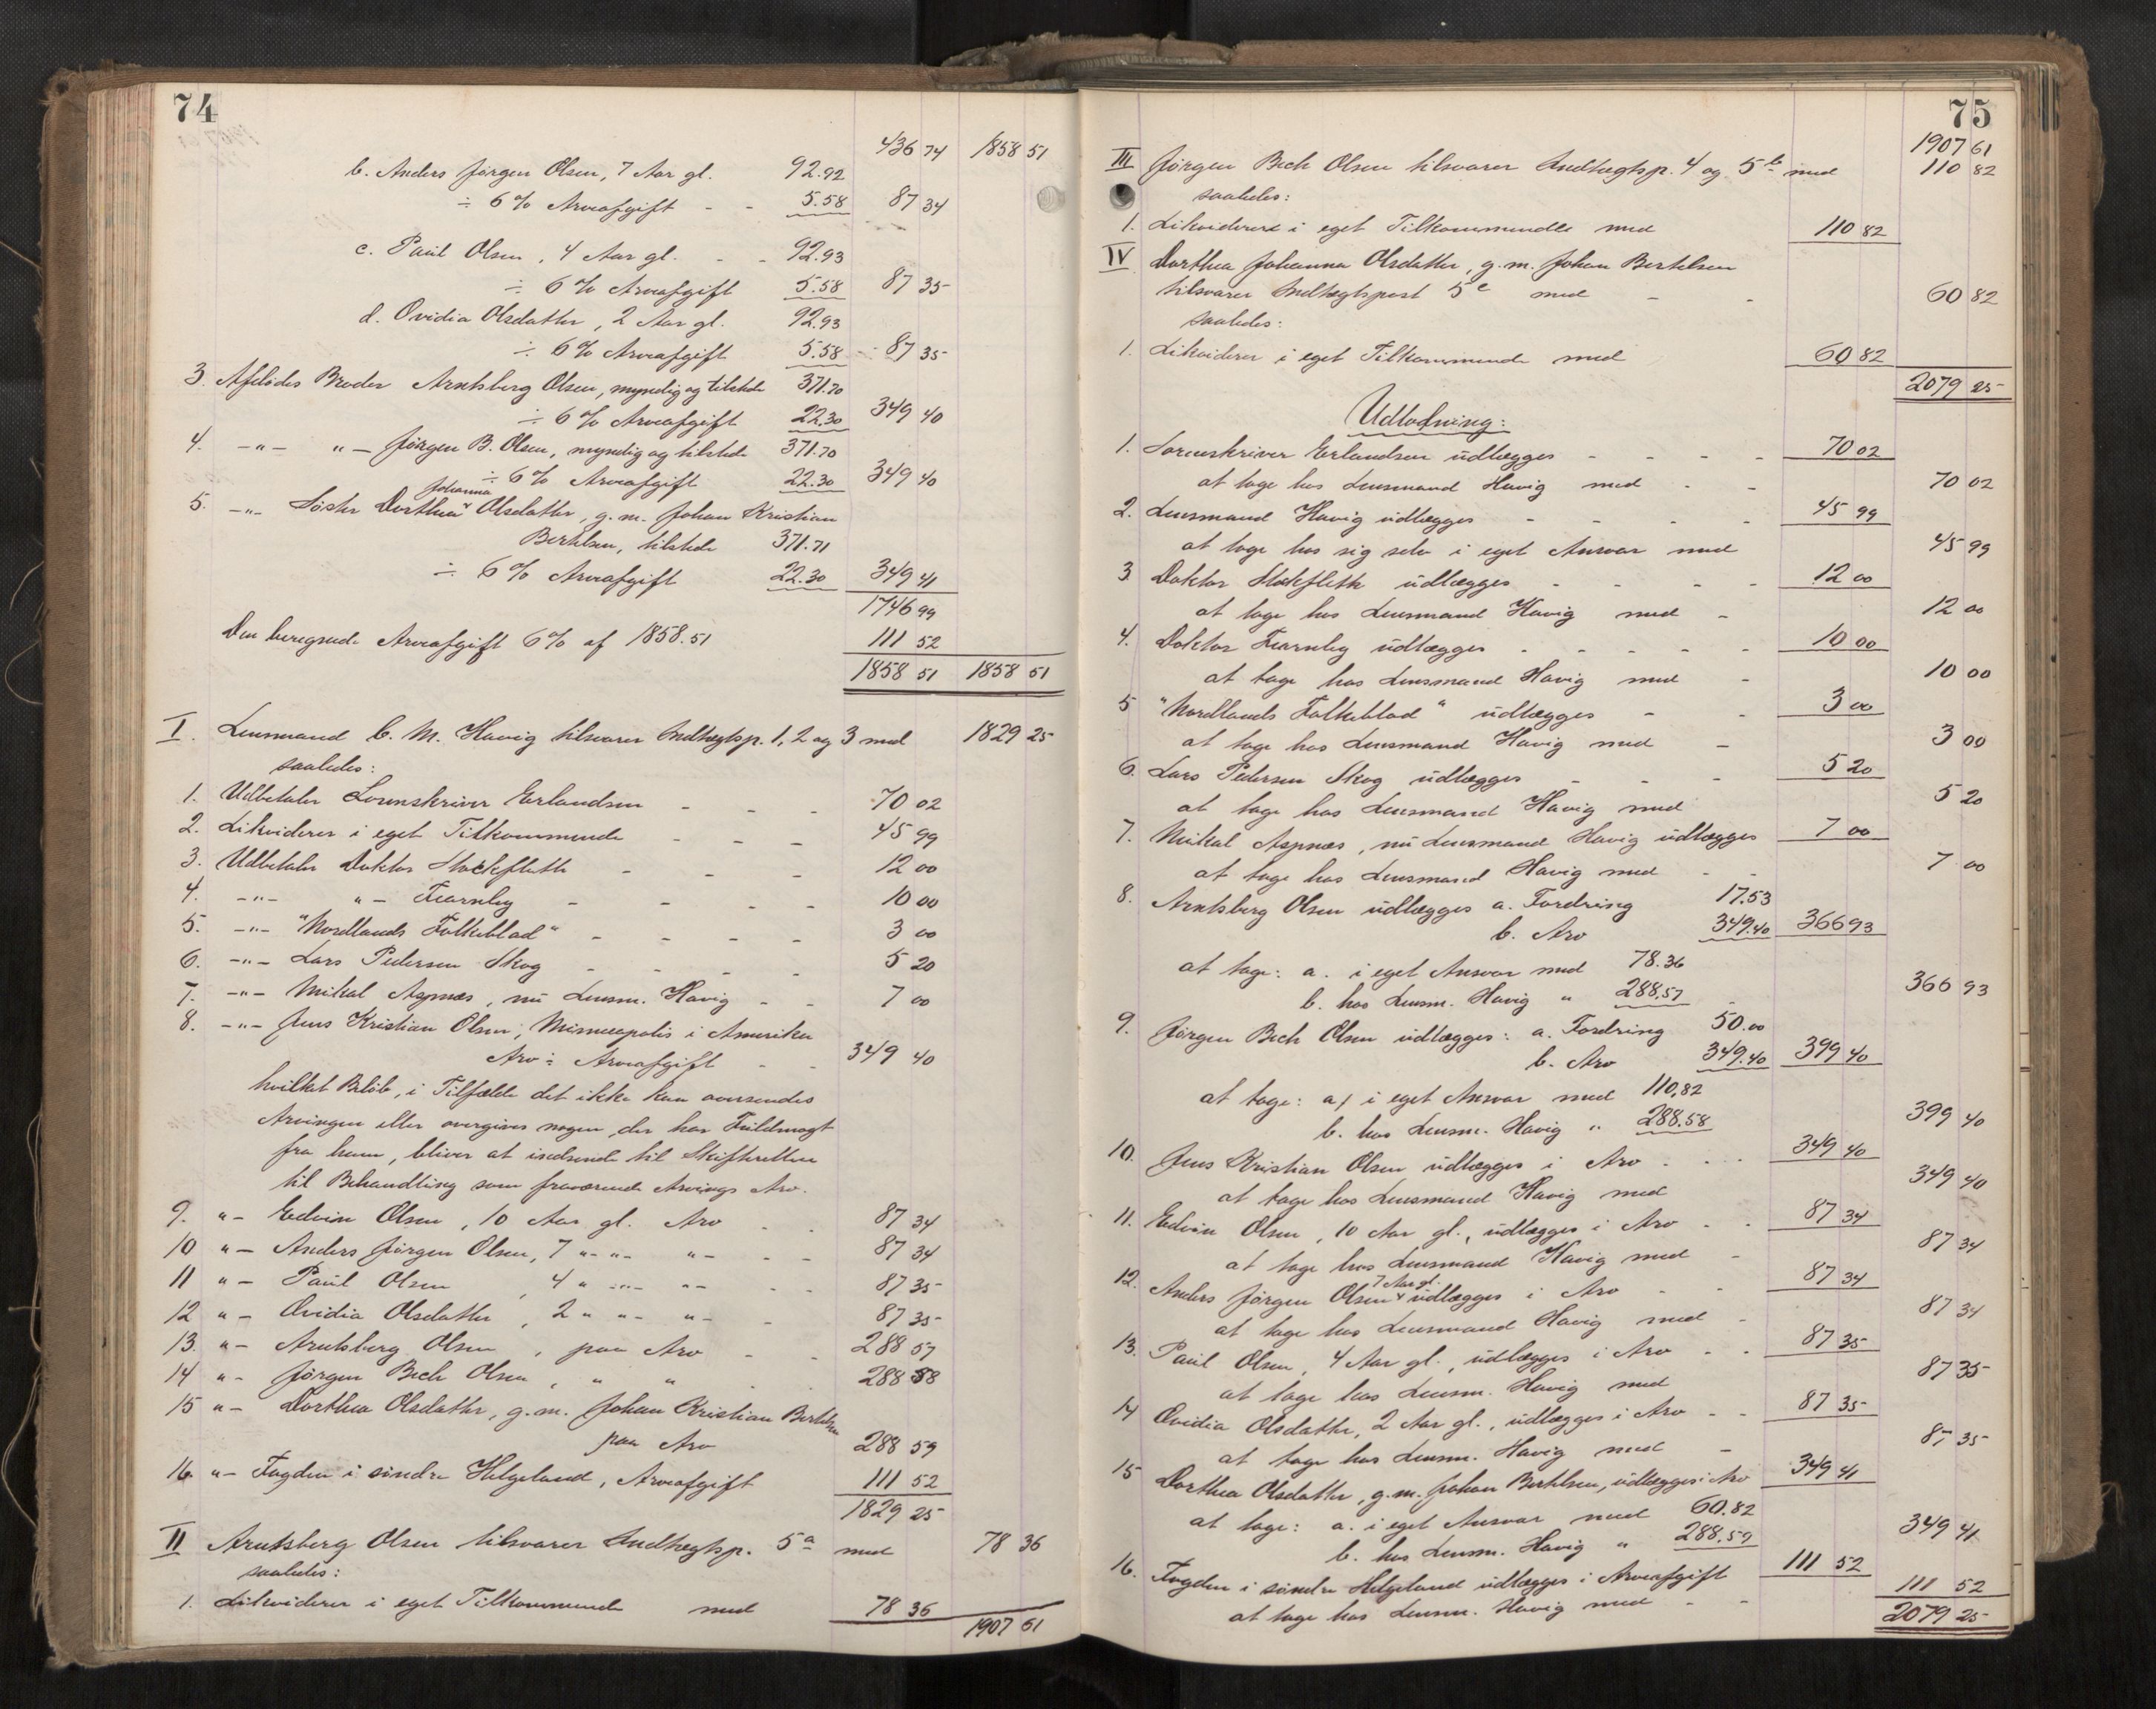 74
436 74 1858 51
b. Anders Jørgen Olsen, 7 Aar gl. 92.92
÷ 6 % Arveafgift - - 5.58 87 34
c. Paul Olsen, 4 Aar gl. - - 92.93
÷ 6 % Arveafgift 5.58 87 35
d. Ovidia Olsdatter, 2 Aar gl. 92.93
÷ 6 % Arveafgift 5.58 87 35
3. Afdødes Broder Arntsberg Olsen, myndig og tilstede 371.70
÷ 6 % Arveafgift 22.30 349 40
4. -"- "- Jørgen B. Olsen, myndig og tilstede 371.70
÷ 6 % Arveafgift 22.30 349 40
5. -"- Søster Dorthea Johanna Olsdatter, g.m. Johan Kristian
Bertelsen, tilstede 371.71
÷ 6 % Arveafgift 22.30 349 41
1746 99
Den beregnede Arveafgift 6 % af 1858.51 111 52
1858 51 1858 51
I. Lensmand C. M. Havig tilsvarer Indtægtsp. 1, 2 og 3 med 1829 25
saaledes:
1. Udbetaler Sorenskriver Erlandsen - - - 70 02
2. Likviderer i eget Tilkommende - - - 45 99
3. Udbetaler Doktor Stockfleth - - - 12 00
4. -"- "- Fearnley - - - - 10 00
5. -"- "Nordlands Folkeblad" - - - - 3 00
6. -"- Lars Pedersen Skog - - - - 5 20
7. -"- Mikal Aspnæs, nu Lensm. Havig - - 7 00
8. -"- Jens Kristian Olsen, Minneapolis i Amerika
Arv ÷ Arveafgift - - 349 40
hvilket Beløb, i Tilfælde det ikke kan oversendes
Arvingen eller overgives nogen der har Fuldmagt
fra ham, bliver at indsende til Skifteretten
til Behandling som fraværende Arvings Arv.
9. "- Edvin Olsen, 10 Aar gl. Arv - - 87 34
10 "- Anders Jørgen Olsen, 7 "- "- "- - - 87 34
11 "- Paul Olsen, 4 " -"- "- - - 87 35
12 "- Ovidia Olsdatter, 2 " "- "- - 87 35
13. "- Arntsberg Olsen, paa Arv - - 288 57
14 "- Jørgen Bech Olsen, " " - - 288 58
15 "- Dorthea Olsdatter, g.m. Johan Kristian Bertelsen
paa Arv 288 59
16. "- Fogden i søndre Helgeland, Arveafgift 111 52
1829 25
II Arntsberg Olsen tilsvarer Indtægtsp. 5a med 78 36
saaledes:
1. Likviderer i eget Tilkommende med 78 36
1907 61
75
1907 61
III Jørgen Bech Olsen tilsvarer Indtægtsp. 4 og 5b med 110 82
saaledes:
1. Likviderer i eget Tilkommende med 110 82
IV Dorthea Johanna Olsdatter, g.m. Johan Bertelsen
tilsvarer Indtægtspost 5c med - - 60 82
saaledes:
1. Likviderer i eget Tilkommende med 60 82
2079 25
Udlodning:
1. Sorenskriver Erlandsen udlægges - - - - 70 02
at tage hos Lensmand Havig med - - 70 02
2. Lensmand Havig udlægges - - - - 45 99
at tage hos sig selv i eget Ansvar med 45 99
3. Doktor Stockfleth udlægges - - - - 12 00
at tage hos Lensmand Havig med - 12 00
4. Doktor Fearnley udlægges - - - - - 10 00
at tage hos Lensmand Havig med - 10 00
5 "Nordlands Folkeblad" udlægges - - 3 00
at tage hos Lensmand Havig med - 3 00
6. Lars Pedersen Skog udlægges - - - 5 20
at tage hos Lensmand Havig med 5 20
7. Mikal Aspnæs, nu Lensmand Havig udlægges 7 00
at tage hos Lensmand Havig med - - 7 00
8. Arntsberg Olsen udlægges a. Fordring 17.53
b. Arv 349.40 366 93
at tage: a. i eget Ansvar med 78.36
b. hos Lensm. Havig " 288.57 - 366 93
9. Jørgen Bech Olsen udlægges: a. Fordring 50.00
b. Arv 349.40 399 40
at tage: a) i eget Ansvar med 110,82
b. hos Lensm. Havig " 288.58 399 40
10. Jens Kristian Olsen udlægges i Arv - - - 349 40
at tage hos Lensmand Havig med 349 40
11. Edvin Olsen, 10 Aar gl., udlægges i Arv - - 87 34
at tage hos Lensmand Havig med - 87 34
12. Anders Jørgen Olsen 7 Aar gl. udlægges i Arv - - 87 34
at tage hos Lensmand Havig med - 87 34
13. Paul Olsen, 4 Aar gl., udlægges i Arv - - 87 35
at tage hos Lensm. Havig med 87 35
14 Ovidia Olsdatter, 2 Aar gl., udlægges i Arv - - 87 35
at tage hos Lensm. Havig med - 87 35
15 Dorthea Olsdatter, g.m. Johan Bertelsen, udlægges i Arv 349 41
at tage: a. i eget Ansvar med 60.82
b. hos Lensm. Havig " 288.59 349 41
16. Fogden i søndre Helgeland udlægges i Arveafgift 111 52
at tage hos Lensm. Havig med - - 111 52
2079 25